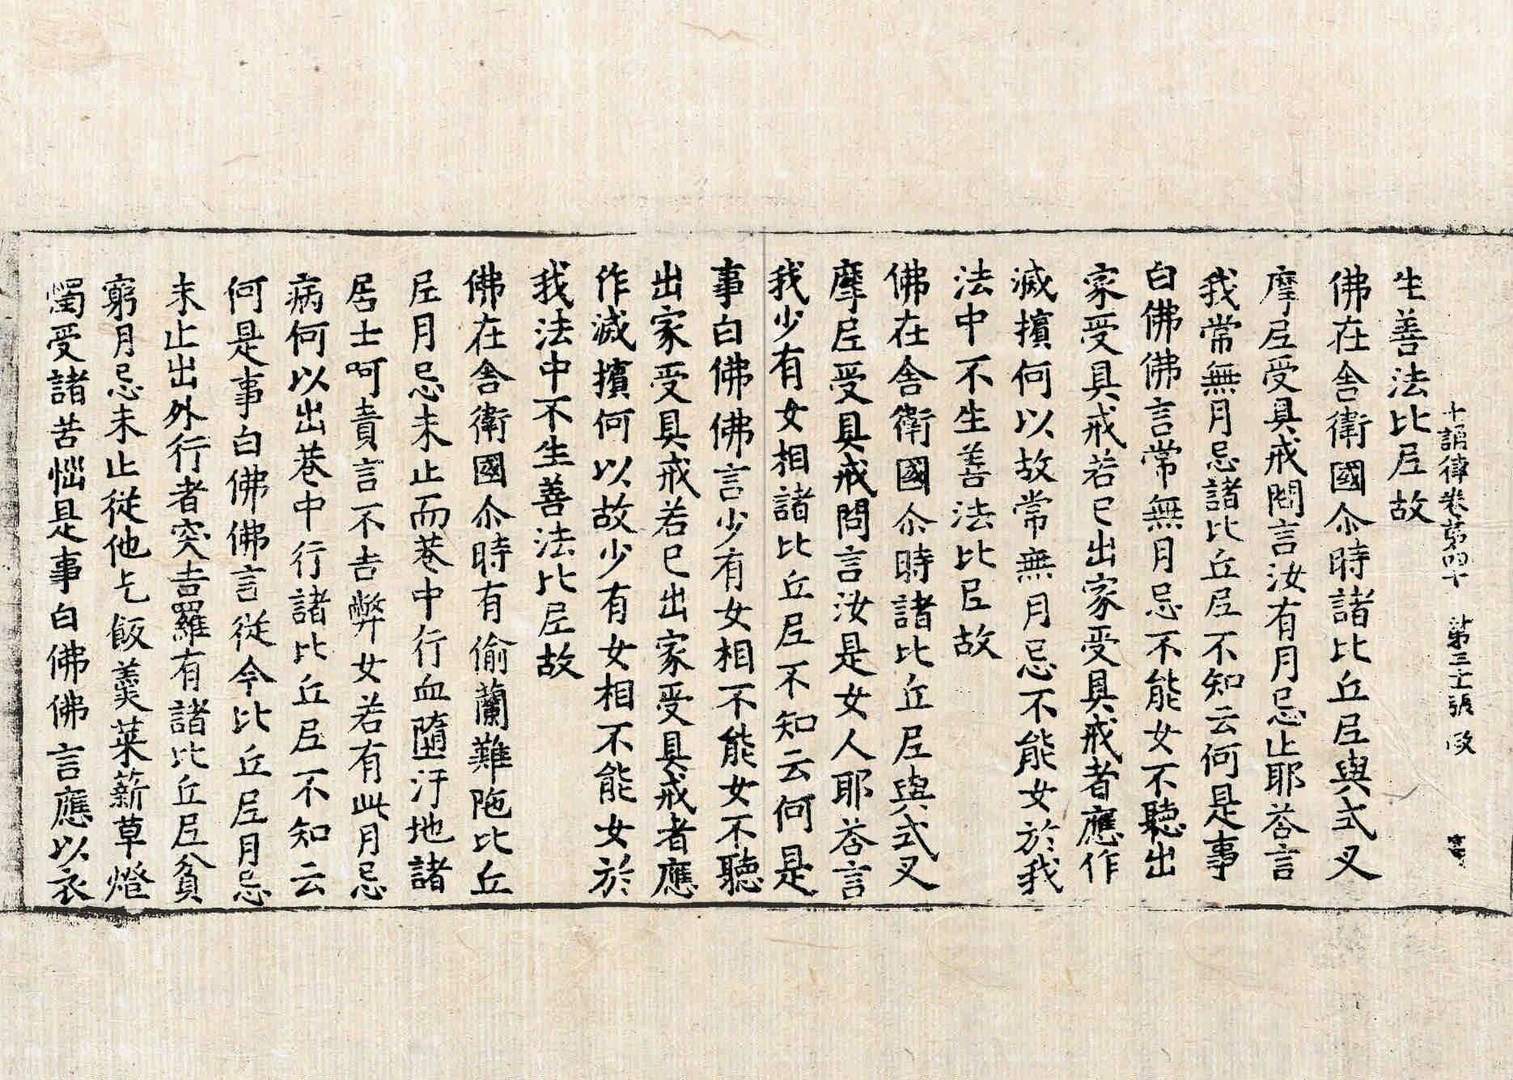 十誦律卷第四十　第三十二張　𢽾
生善法比𡰱故
佛在舍衛國尒時諸比丘𡰱與式叉
摩𡰱受具戒問言汝有月忌止耶荅言
我常無月忌諸比丘𡰱不知云何是事
白佛佛言常無月忌不能女不聽出
家受具戒若已出家受具戒者應作
滅擯何以故常無月忌不能女於我
法中不生善法比𡰱故
佛在舍衛國尒時諸比丘𡰱與式叉
摩𡰱受具戒問言汝是女人耶荅言
我少有女相諸比丘𡰱不知云何是
事白佛佛言少有女相不能女不聽
出家受具戒若已出家受具戒者應
作滅擯何以故少有女相不能女於
我法中不生善法比𡰱故
佛在舍衛國尒時有偷蘭難陁比丘
𡰱月忌未止而巷中行血墮汙地諸
居士呵責言不吉弊女若有此月忌
病何以出巷中行諸比丘𡰱不知云
何是事白佛佛言從今比丘𡰱月忌
未止出外行者突吉羅有諸比丘𡰱貧
窮月忌未止從他乞飯羹菜薪草燈
燭受諸苦惱是事白佛佛言應以衣